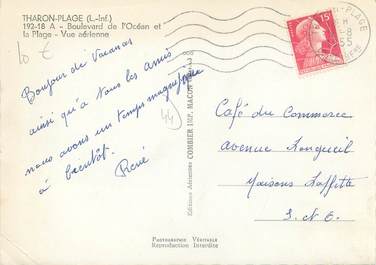 THARON-PLAGE (L.-Inf.)
192-18 A - Boulevard de l'Océan et
la Plage - Vue aérienne
10 €
Bonjour de Vacances
ainsi qu'à tous les amis
nous avons un temps magnifique
à bientôt. René
44
Editions Aériennes COMBIER IMP. MACON
15F
Café du Commerce
avenue Longueil
Maisons Laffitte
S. et O.
Photographie Véritable
Reproduction Interdite